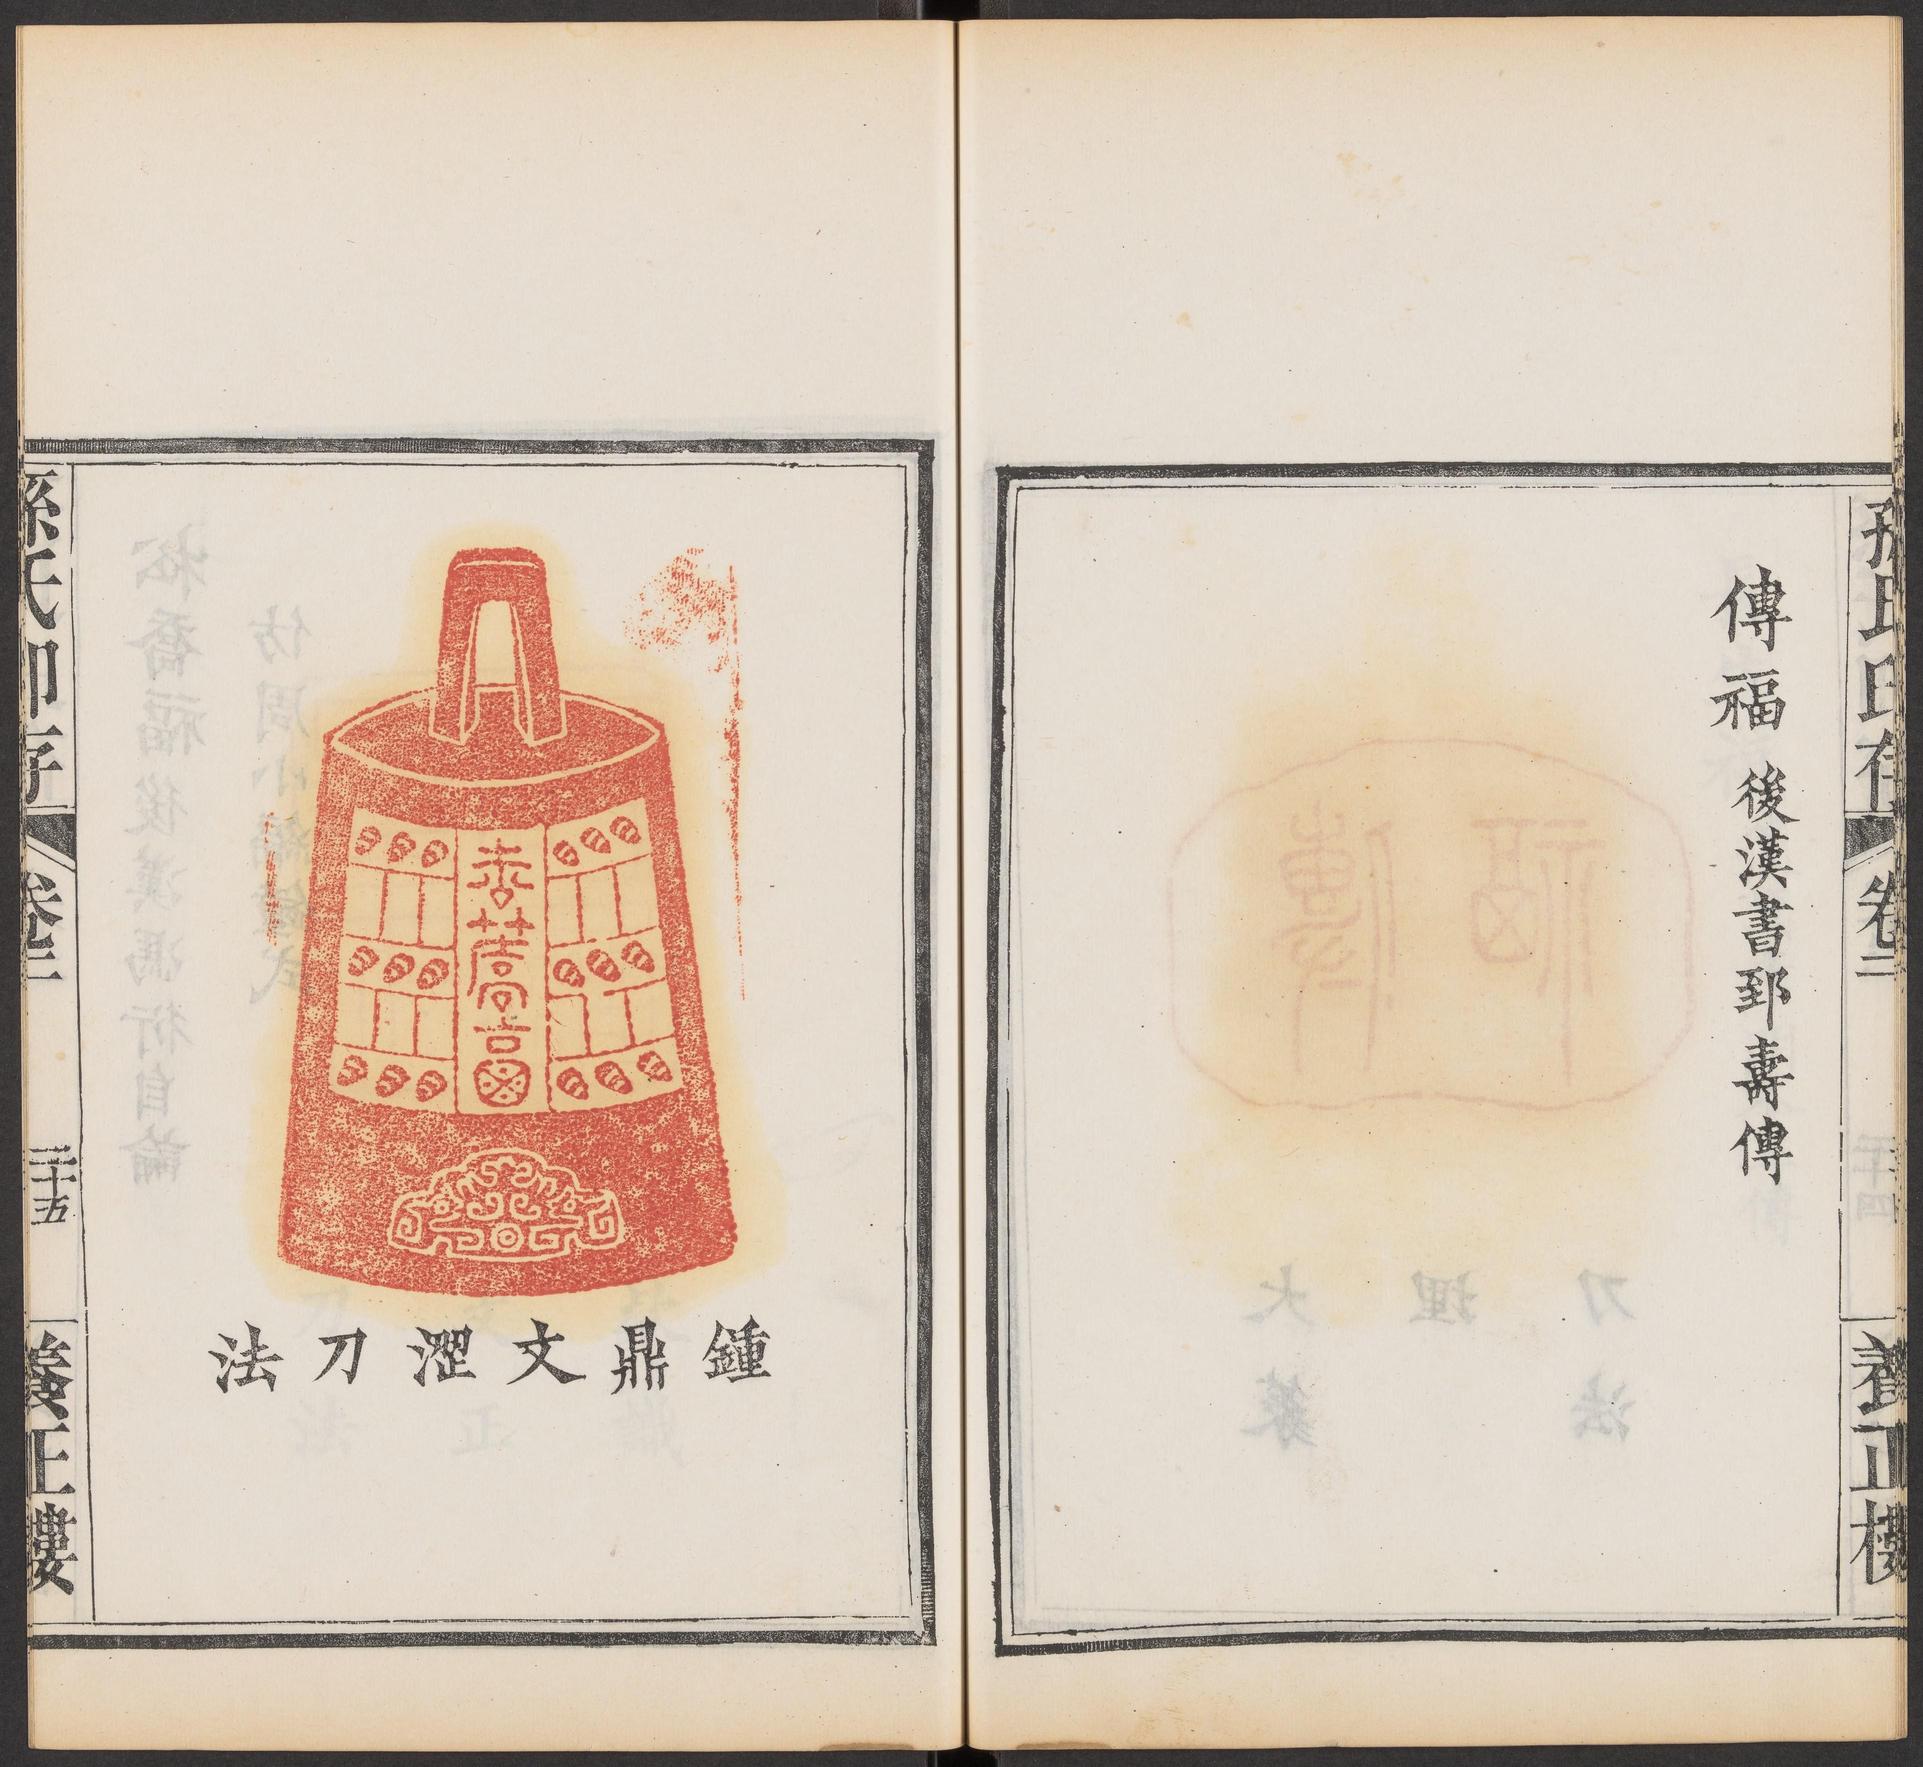 孫氏印存
卷二
養正樓
傳福
後漢書郅壽傳
鍾鼎文澀刀法
孫氏印存
卷二
二十五
養正樓